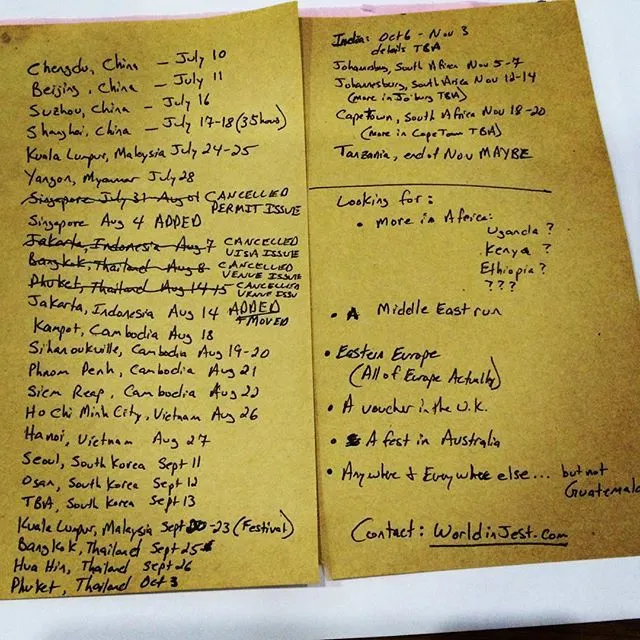 Chengdu, China – July 10
Beijing, China – July 11
Suzhou, China – July 16
Shanghai, China – July 17-18 (3 Shows)
Kuala Lumpur, Malaysia July 24-25
Yangon, Myanmar July 28
Singapore July 31 Aug 01 CANCELLED PERMIT ISSUE
Singapore Aug 4 ADDED
Jakarta, Indonesia Aug 7 CANCELLED VISA ISSUE
Bangkok, Thailand Aug 8 CANCELLED VENUE ISSUE
Phuket, Thailand Aug 14-15 CANCELLED VENUE ISSU
Jakarta, Indonesia Aug 14 ADDED + MOVED
Kampot, Cambodia Aug 18
Sihanoukville, Cambodia Aug 19-20
Phnom Penh, Cambodia Aug 21
Siem Reap, Cambodia Aug 22
Ho Chi Minh City, Vietnam Aug 26
Hanoi, Vietnam Aug 27
Seoul, South Korea Sept 11
Osan, South Korea Sept 12
TBA, South Korea Sept 13
Kuala Lumpur, Malaysia Sept 20-23 (Festival)
Bangkok, Thailand Sept 25
Hua Hin, Thailand Sept 26
Phuket, Thailand Oct 3
India: Oct 6 - Nov 3
details TBA
Johannesburg, South Africa Nov 5-7
Johannesburg, South Africa Nov 12-14
(more in Jo'burg TBA)
Cape Town, South Africa Nov 18-20
(more in Cape Town TBA)
Tanzania, end of Nov MAYBE
Looking for:
• More in Africa:
Uganda ?
Kenya ?
Ethiopia ?
? ? ?
• A Middle East run
• Eastern Europe
(All of Europe Actually)
• A voucher in the U.K.
• A fest in Australia
• Anywhere & Everywhere else... but not
Guatemala
Contact: WorldinJest.com